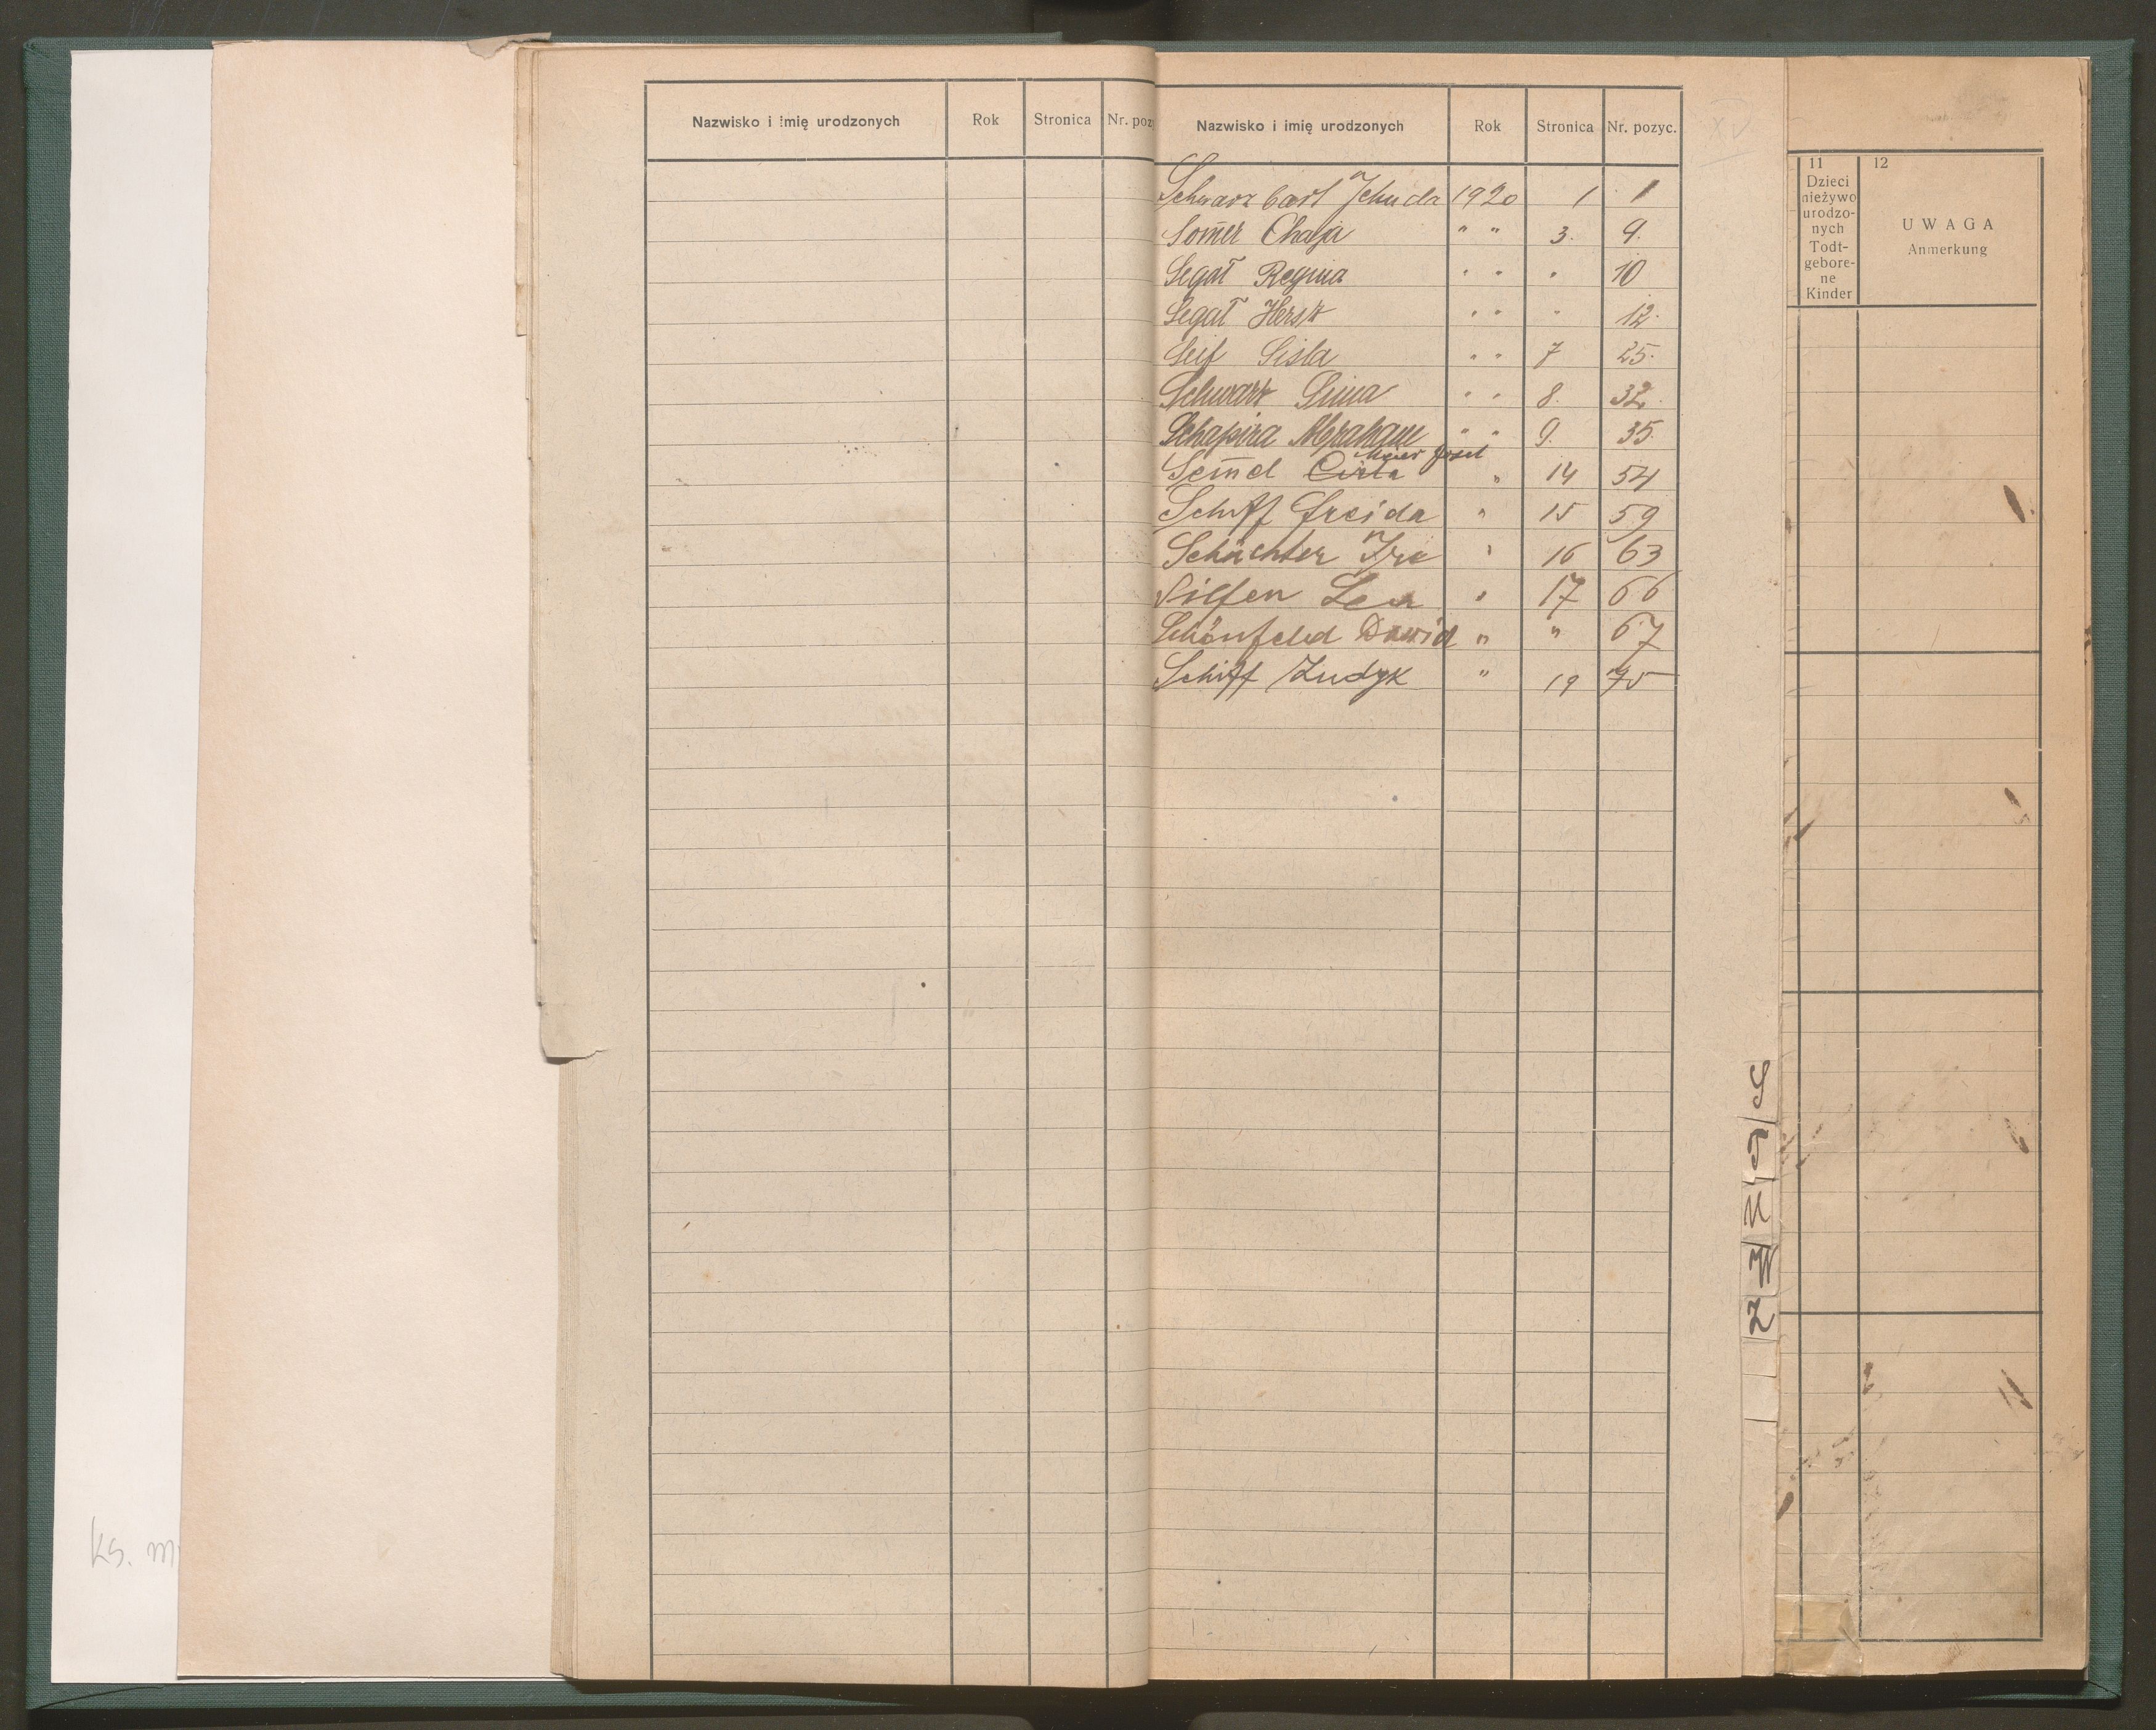 Nazwisko i imię urodzonych Rok Stronica Nr. poz
Nazwisko i imię urodzonych Rok Stronica Nr. pozyc.
Schwarzbart Jehuda 1920 1 1
Som̄er Chaja " " 3. 9.
Segał Regina " " " 10
Segał Hersz " " " 12.
Seif Sisla " " 7 25.
Schwarz " " 8. 32.
Schapira Abraham " " 9. 35.
Meier Josel
Sem̄el Cirla " 14 54
Schiff Freida " 15 59
Schächter " 16 63
Silfen Lea " 17 66
Schönfeld Dawid " " 67
Schiff Zudyk " 19 75
11
Dzieci
nieżywo
urodzo-
nych
Todt-
gebore-
ne
Kinder
12
UWAGA
Anmerkung
S
T
U
W
Z
ks. m